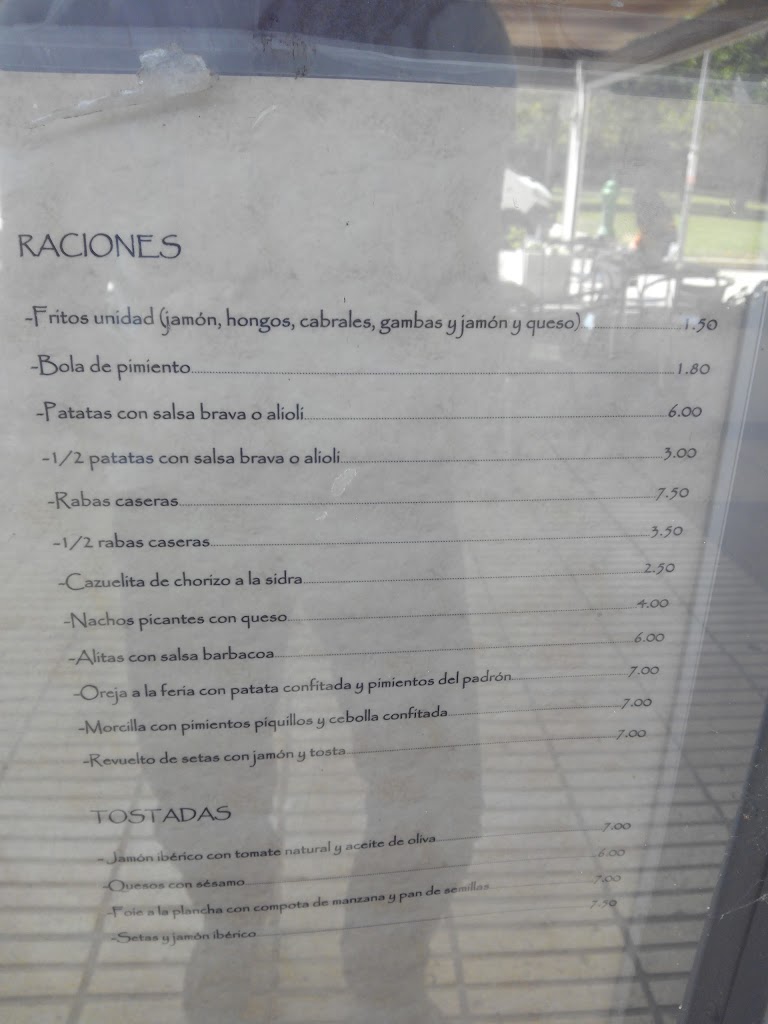 RACIONES
-Fritos unidad (jamón, hongos, cabrales, gambas y jamón y queso)..........1.50
-Bola de pimiento..........1.80
-Patatas con salsa brava o alioli..........6.00
-1/2 patatas con salsa brava o alioli..........3.00
-Rabas caseras..........7.50
-1/2 rabas caseras..........3.50
-Cazuelita de chorizo a la sidra..........2.50
-Nachos picantes con queso..........4.00
-Alitas con salsa barbacoa..........6.00
-Oreja a la feria con patata confitada y pimientos del padrón..........7.00
-Morcilla con pimientos piquillos y cebolla confitada..........7.00
-Revuelto de setas con jamón y tosta..........7.00
TOSTADAS
-Jamón ibérico con tomate natural y aceite de oliva..........7.00
-Quesos con sésamo..........6.00
-Foie a la plancha con compota de manzana y pan de semillas..........7.00
-Setas y jamón ibérico..........7.50